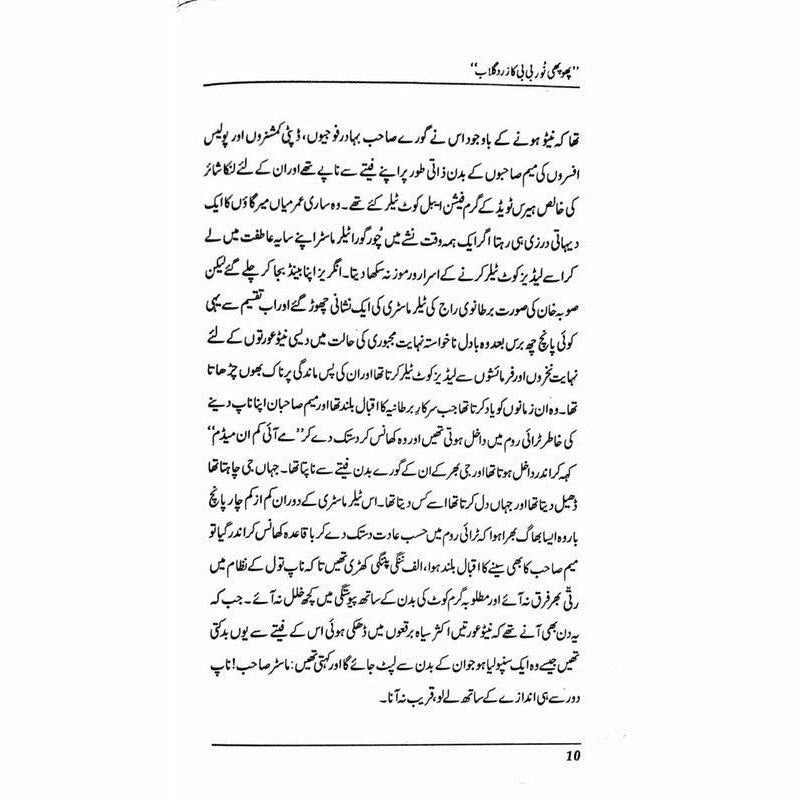 ”پھوپھی نُور بی بی کا زرد گلاب“
تھا کہ نیٹو ہونے کے باوجود اس نے گورے صاحب بہادر فوجیوں، ڈپٹی کمشنروں اور پولیس
افسروں کی میم صاحبوں کے بدن ذاتی طور پر اپنے فیتے سے ناپے تھے اور ان کے لئے لنکا شائر
کی خالص ہیرس ٹویڈ کے گرم فیشن ایبل کوٹ ٹیلر کئے تھے۔ وہ ساری عمر میاں میر گاؤں کا ایک
دیہاتی درزی ہی رہتا اگر ایک ہمہ وقت نشے میں چُور گورا ٹیلر ماسٹر اپنے سایہ عاطفت میں لے
کر اسے لیڈیز کوٹ ٹیلر کرنے کے اسرار و رموز نہ سکھا دیتا۔ انگریز اپنا بینڈ بجا کر چلے گئے لیکن
صوبہ خان کی صورت برطانوی راج کی ٹیلر ماسٹری کی ایک نشانی چھوڑ گئے اور اب تقسیم سے یہی
کوئی پانچ چھ برس بعد وہ بادل ناخواستہ نہایت مجبوری کی حالت میں دیسی نیٹو عورتوں کے لئے
نہایت نخروں اور فرمائشوں سے لیڈیز کوٹ ٹیلر کرتا تھا اور ان کی پس ماندگی پر ناک بھوں چڑھاتا
تھا۔ وہ ان زمانوں کو یاد کرتا تھا جب سرکار برطانیہ کا اقبال بلند تھا اور میم صاحبان اپنا ناپ دینے
کی خاطر ٹرائی روم میں داخل ہوتی تھیں اور وہ کھانس کر دستک دے کر ”مے آئی کم ان میڈم“
کہہ کر اندر داخل ہوتا تھا اور جی بھر کے ان کے گورے بدن فیتے سے ناپتا تھا۔ جہاں جی چاہتا تھا
ڈھیل دیتا تھا اور جہاں دل کرتا تھا اسے کس دیتا تھا۔ اس ٹیلر ماسٹری کے دوران کم از کم چار پانچ
بار وہ ایسا بھاگ بھرا ہوا کہ ٹرائی روم میں حسب عادت دستک دے کر باقاعدہ کھانس کر اندر گیا تو
میم صاحب کا بھی سینے کا اقبال بلند ہوا، الف ننگی پتنگی کھڑی تھیں تا کہ ناپ تول کے نظام میں
رتّی بھر فرق نہ آئے اور مطلوبہ گرم کوٹ کی بدن کے ساتھ پیوستگی میں کچھ خلل نہ آئے۔ جب کہ
یہ دن بھی آنے تھے کہ نیٹو عورتیں اکثر سیاہ برقعوں میں ڈھکی ہوئی اس کے فیتے سے یوں بدکتی
تھیں جیسے وہ ایک سنپولیا ہو جو ان کے بدن سے لپٹ جائے گا اور کہتی تھیں: ماسٹر صاحب! ناپ
دور سے ہی اندازے کے ساتھ لے لو، قریب نہ آنا۔
10